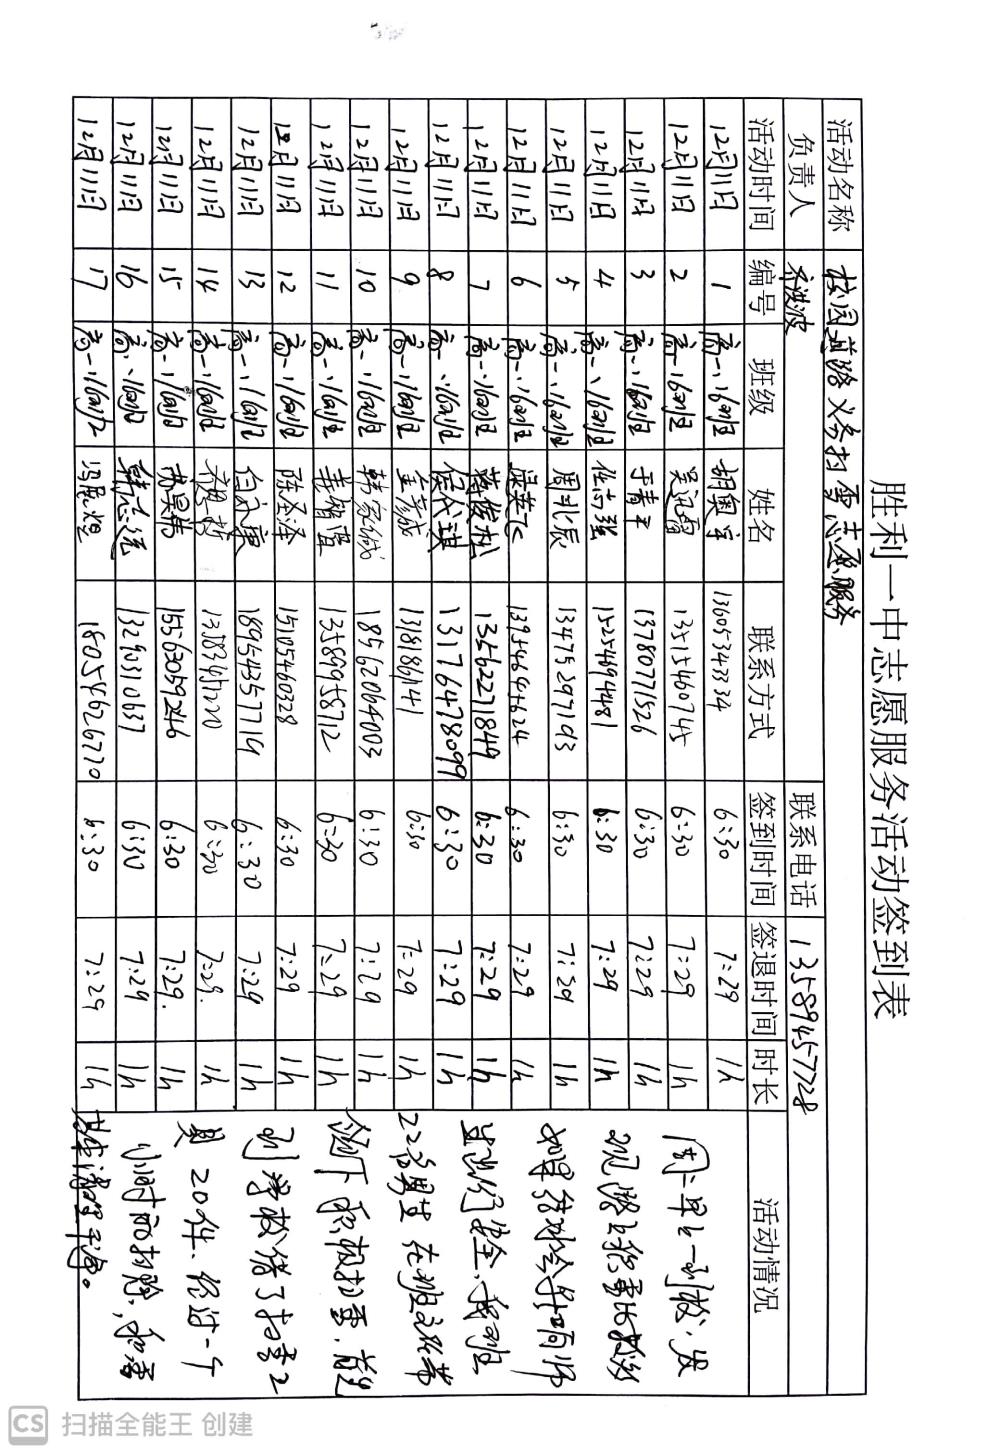 胜利一中志愿服务活动签到表
活动名称 校园道路义务扫雪志愿服务
负责人 乔洪波 联系电话 13589457728
活动时间 编号 班级 姓名 联系方式 签到时间 签退时间 时长 活动情况
12月11日 1 高一、16班 胡奥宇 13605343334 6:30 7:29 1h
12月11日 2 高一、16班 13515460745 6:30 7:29 1h
12月11日 3 高一、16班 于春 13780771526 6:30 7:29 1h
12月11日 4 高一、16班 任 强 15254694481 6:30 7:29 1h
12月11日 5 高一、16班 周北辰 13475297193 6:30 7:29 1h
12月11日 6 高一、16班 13954644624 6:30 7:29 1h
12月11日 7 高一、16班 蒋俊松 13562271849 6:30 7:29 1h
12月11日 8 高一、16班 侯 琪 13176478099 6:30 7:29 1h
12月11日 9 高一、16班 6:30 7:29 1h
12月11日 10 高一、16班 韩家诚 18562064003 6:30 7:29 1h
12月11日 11 高一、16班 姜 13589958712 6:30 7:29 1h
12月11日 12 高一、16班 陈圣泽 15105460328 6:30 7:29 1h
12月11日 13 高一、16班 18954357719 6:30 7:29 1h
12月11日 14 高一、16班 6:30 7:29. 1h
12月11日 15 高一、16班 15563059246 6:30 7:29. 1h
12月11日 16 高一、16班 韩志远 13290310637 6:30 7:29 1h
12月11日 17 高一、16班 冯 煜 18054626770 6:30 7:29 1h
周二早上一到校,发
现路上积雪比较
如果结冰会影响师
生出行安全,我班
22名男生在班主任带
领下积极扫雪,首先
到学校借了扫雪工
具20件、经过一个
小时的打扫,积雪
基本清理干净。
CS 扫描全能王 创建